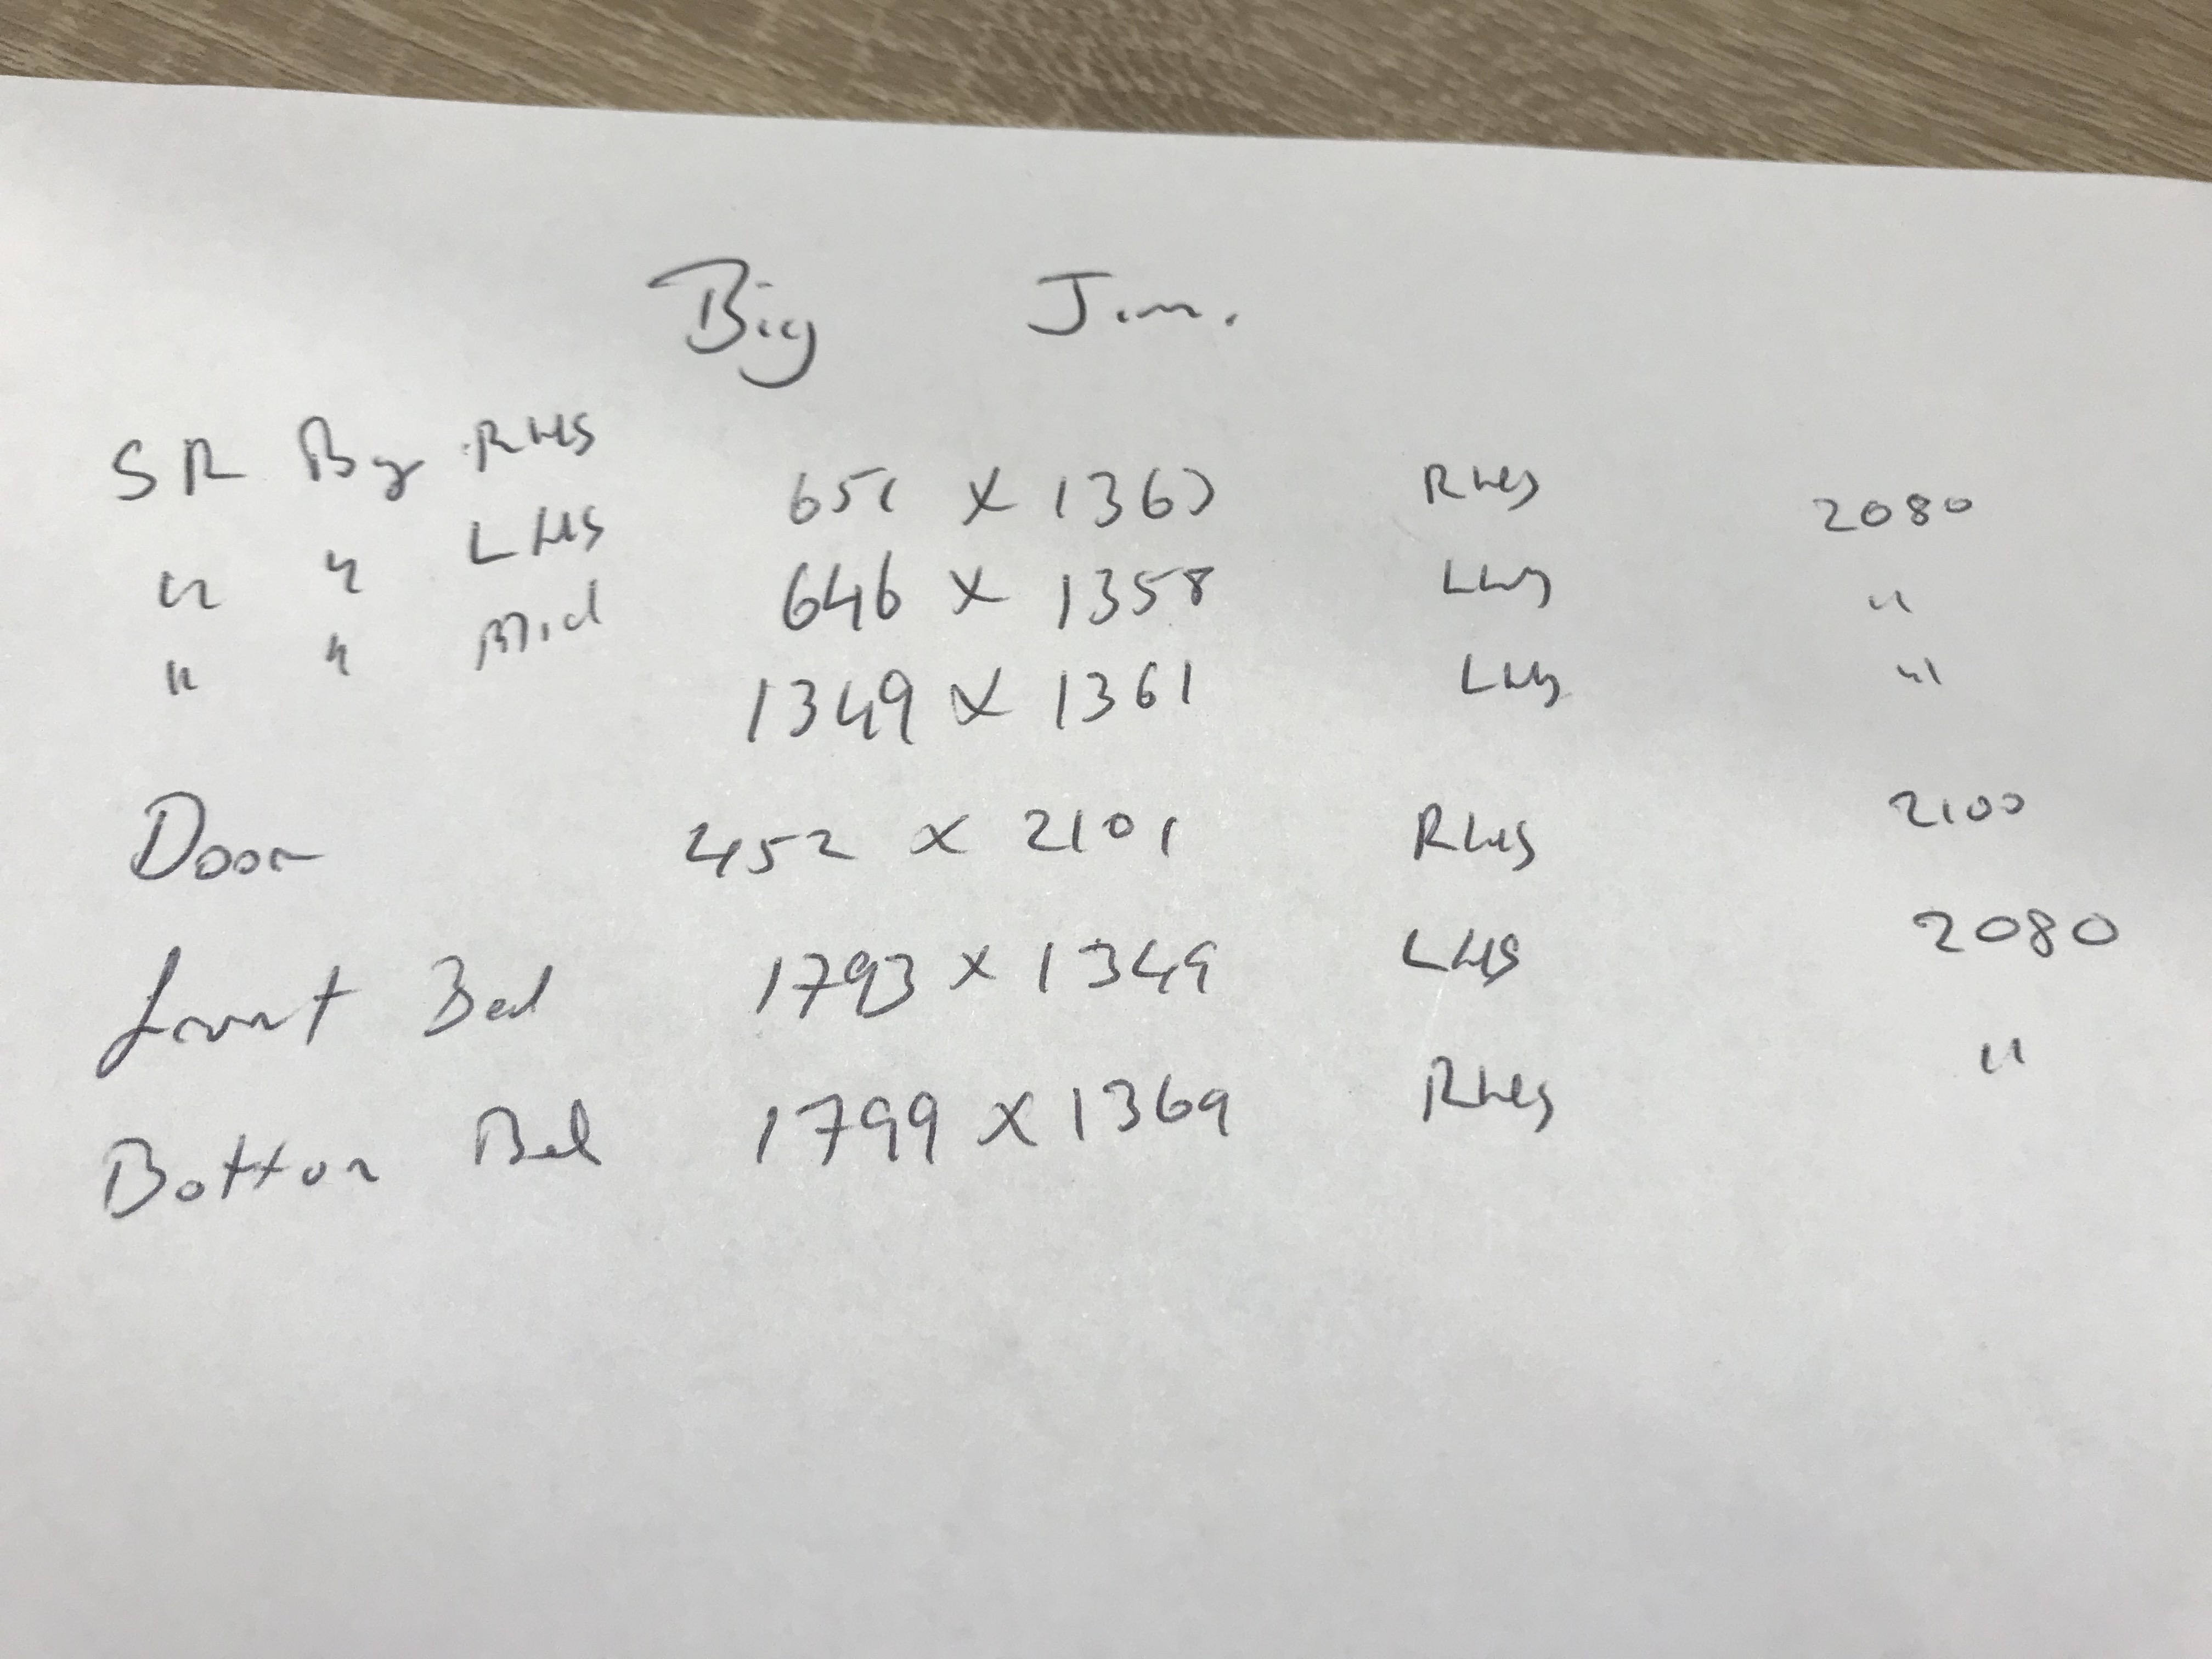 Big Jim.
SR Bay RHS 651 x 1363 RHS 2080
" " LHS 646 x 1358 LHS "
" " Mid 1349 x 1361 LHS "
Door 452 x 2101 RHS 2100
front Bed 1793 x 1349 LHS 2080
Bottom Bed 1799 x 1369 RHS "